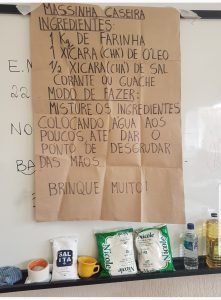 MASSINHA CASEIRA
INGREDIENTES:
1 Kg DE FARINHA
1 XÍCARA (CHA) DE ÓLEO
1/2 XICARA (CHA) DE SAL
CORANTE OU GUACHE
MODO DE FAZER:
MISTURE OS INGREDIENTES
COLOCANDO ÁGUA AOS
POUCOS, ATÉ DAR O
PONTO DE DESGRUDAR
DAS MÃOS.
BRINQUE MUITO!
E.M
22
NO
BA
SALITA
Nicole
Nicole